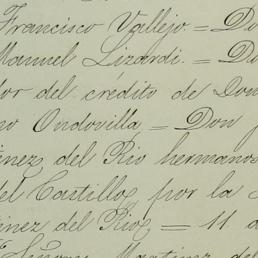 Francisco Vallejo. = Do
Manuel Lizardi. = Do
dor del crédito de Don
no Ondovilla. = Don
inez del Rio hermanos
el Castillo, por la
tinez del Rio, = 11 d
Señores Martinez del